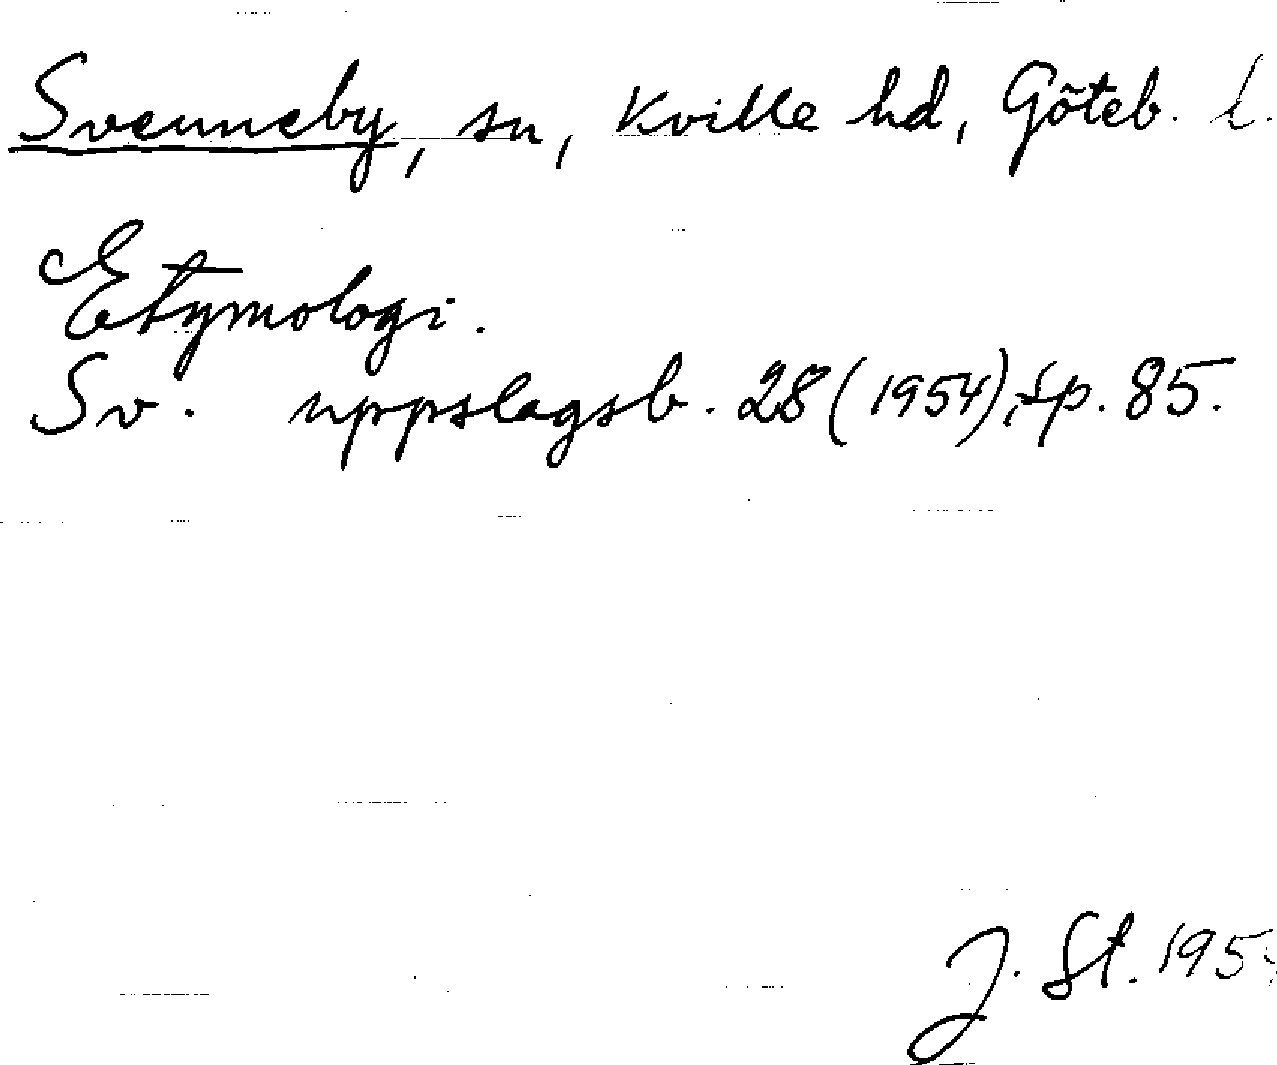 Svenneby, sn, Kville hd, Göteb. l.
Etymologi.
Sv. uppslagsb. 28 (1954), sp. 85.
J. St.